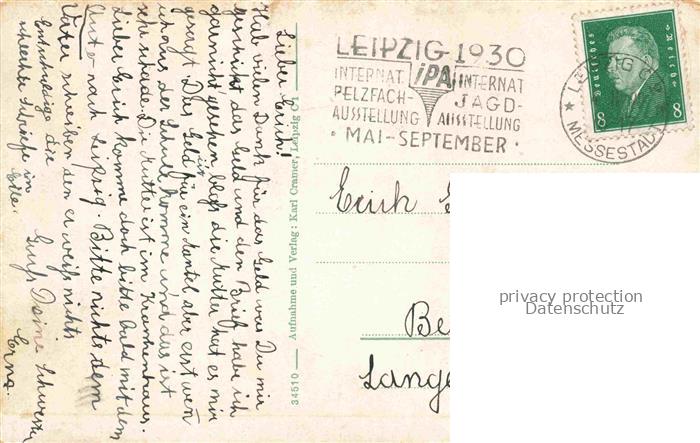 Lieber Erich!
Hab vielen Dank für das Geld was Du mir
geschickt das Geld und den Brief habe ich
garnicht gesehen blos die Mutter hat es mir
gesagt. Das Geld ist für ein Mantel aber erst wen
ich aus der Schule komme und das ist
sehr schade. Die Mutter ist im Krankenhaus.
Lieber Erich komme doch bitte bald mit dem
Auto nach Leipzig. Bitte nichts dem
Vater schreiben den er weiß nichts
Entschuldige die
schlechte Schrift in
Eile.
Gruß Deine Schwester
Erna.
34510 — Aufnahme und Verlag: Karl Cramer, Leipzig C1
LEIPZIG 1930
INTERNAT. iPA INTERNAT
PELZFACH- JAGD-
AUSSTELLUNG AUSSTELLUNG
• MAI-SEPTEMBER •
Deutsches Reich
8 8
LEIPZIG C
MESSESTADT
Erich
Be
Lange
privacy protection
Datenschutz